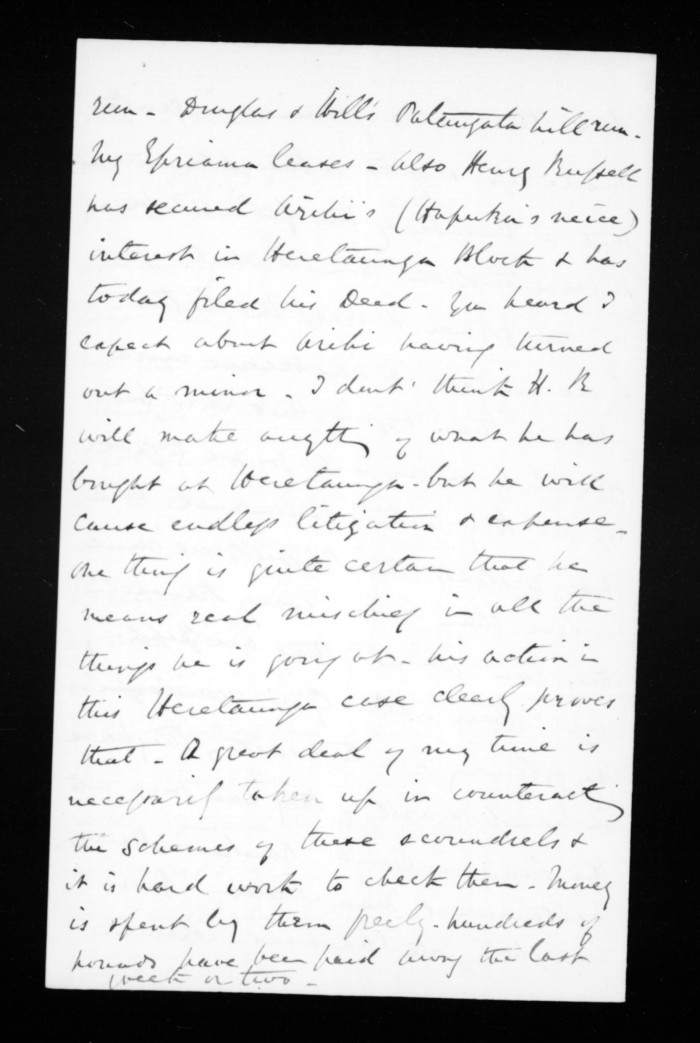 run - Douglas & Hill's Patangata hill run -
my Epiriama leases - also Henry Russell
has secured Arihi's (Hapuku's neice)
interest in Heretaunga Block & has
today filed his Deed - You heard I
expect about Arihi having turned
out a minor - I dont' think H. R
will make anything of what he has
bought at Heretaunga - but he will
cause endless litigation & expense -
one thing is quite certain that he
means real mischief in all the
things he is going at - his action in
this Heretaunga case clearly proves
that - A great deal of my time is
necessarily taken up in counteracting
the schemes of these scoundrels &
it is hard work to check them - Money
is spent by them freely - hundreds of
pounds have been paid away the last
week or two -